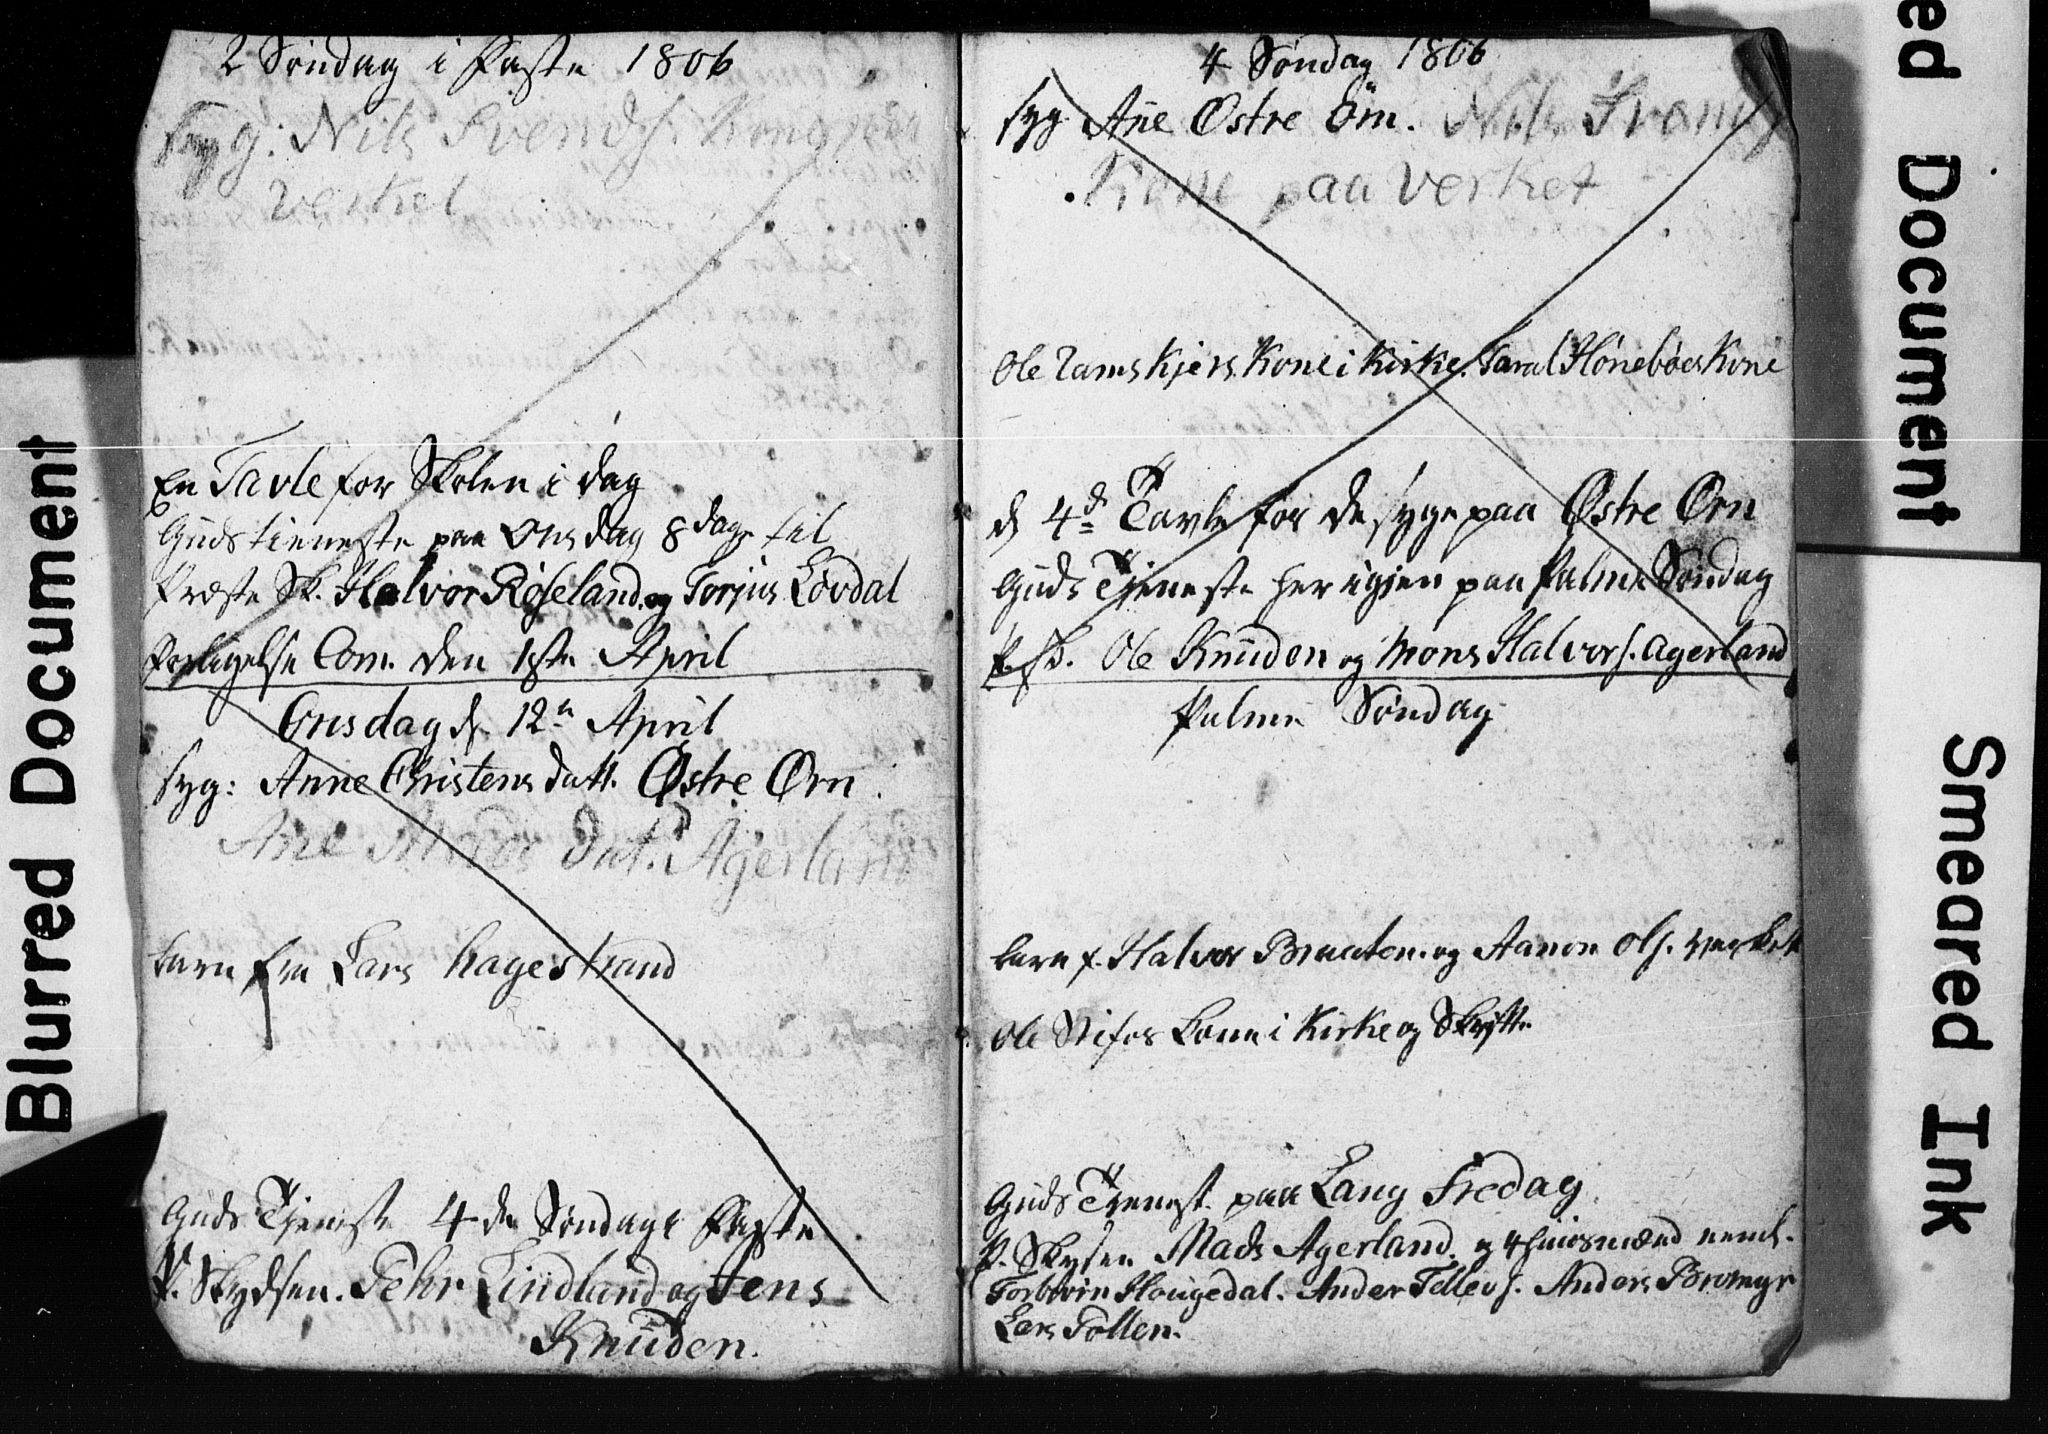 2 Søndag i Faste 1806
syg: Nils Svends.
Verket
En Tavle for Skolen i dag
Guds tieneste paa Onsdag 8 dage til
Præste Sk. Halvor Røseland og Torjus Løvdal
Forligelse Com. den 1ste April
Onsdag d. 12te April
syg: Anne Christens datt. Østre Ørn
Ane Mads Dat. Agerland
barn fra Lars Hagestrand
Guds Tjeneste 4de Søndag i Faste
P. Skydsen. Pehr Lindland og Jens
Knuden.
4 Søndag 1806
syg Ane Østre Örn. Nils
Kone paa Verket
Ole Ramskjers Kone i Kirke. Taral Hönebøes Kone
d 4de Tavle for de syge paa Østre Ørn
Guds Tjeneste her igjen paa Palme Søndag
Ole Knuden og Mons Halvors. Agerland
Palme Søndag
barn f. Halvor Braaten og Aanon Ols. Verket
Ole Kone i Kirke og Skrifte
Guds Tienest. paa Lang Fredag
P. Skysen Mads Agerland. og 4 Huusmænd neml.
Torbiørn Haugedal. Ander Tellevs. Anders Bromyr
Lars Tollen.
Blurred Document
ed Document
Smeared Ink